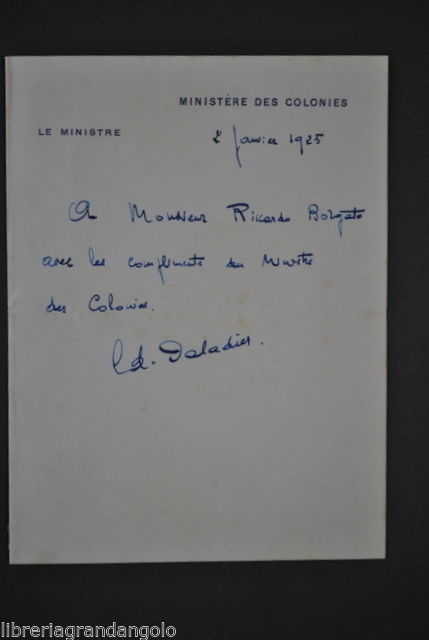 MINISTÈRE DES COLONIES
LE MINISTRE
2 Janvier 1925
A Monsieur Riccardo Borgato
avec les compliments du Ministre
des Colonies.
Ed. Daladier.
libreriagrandangolo